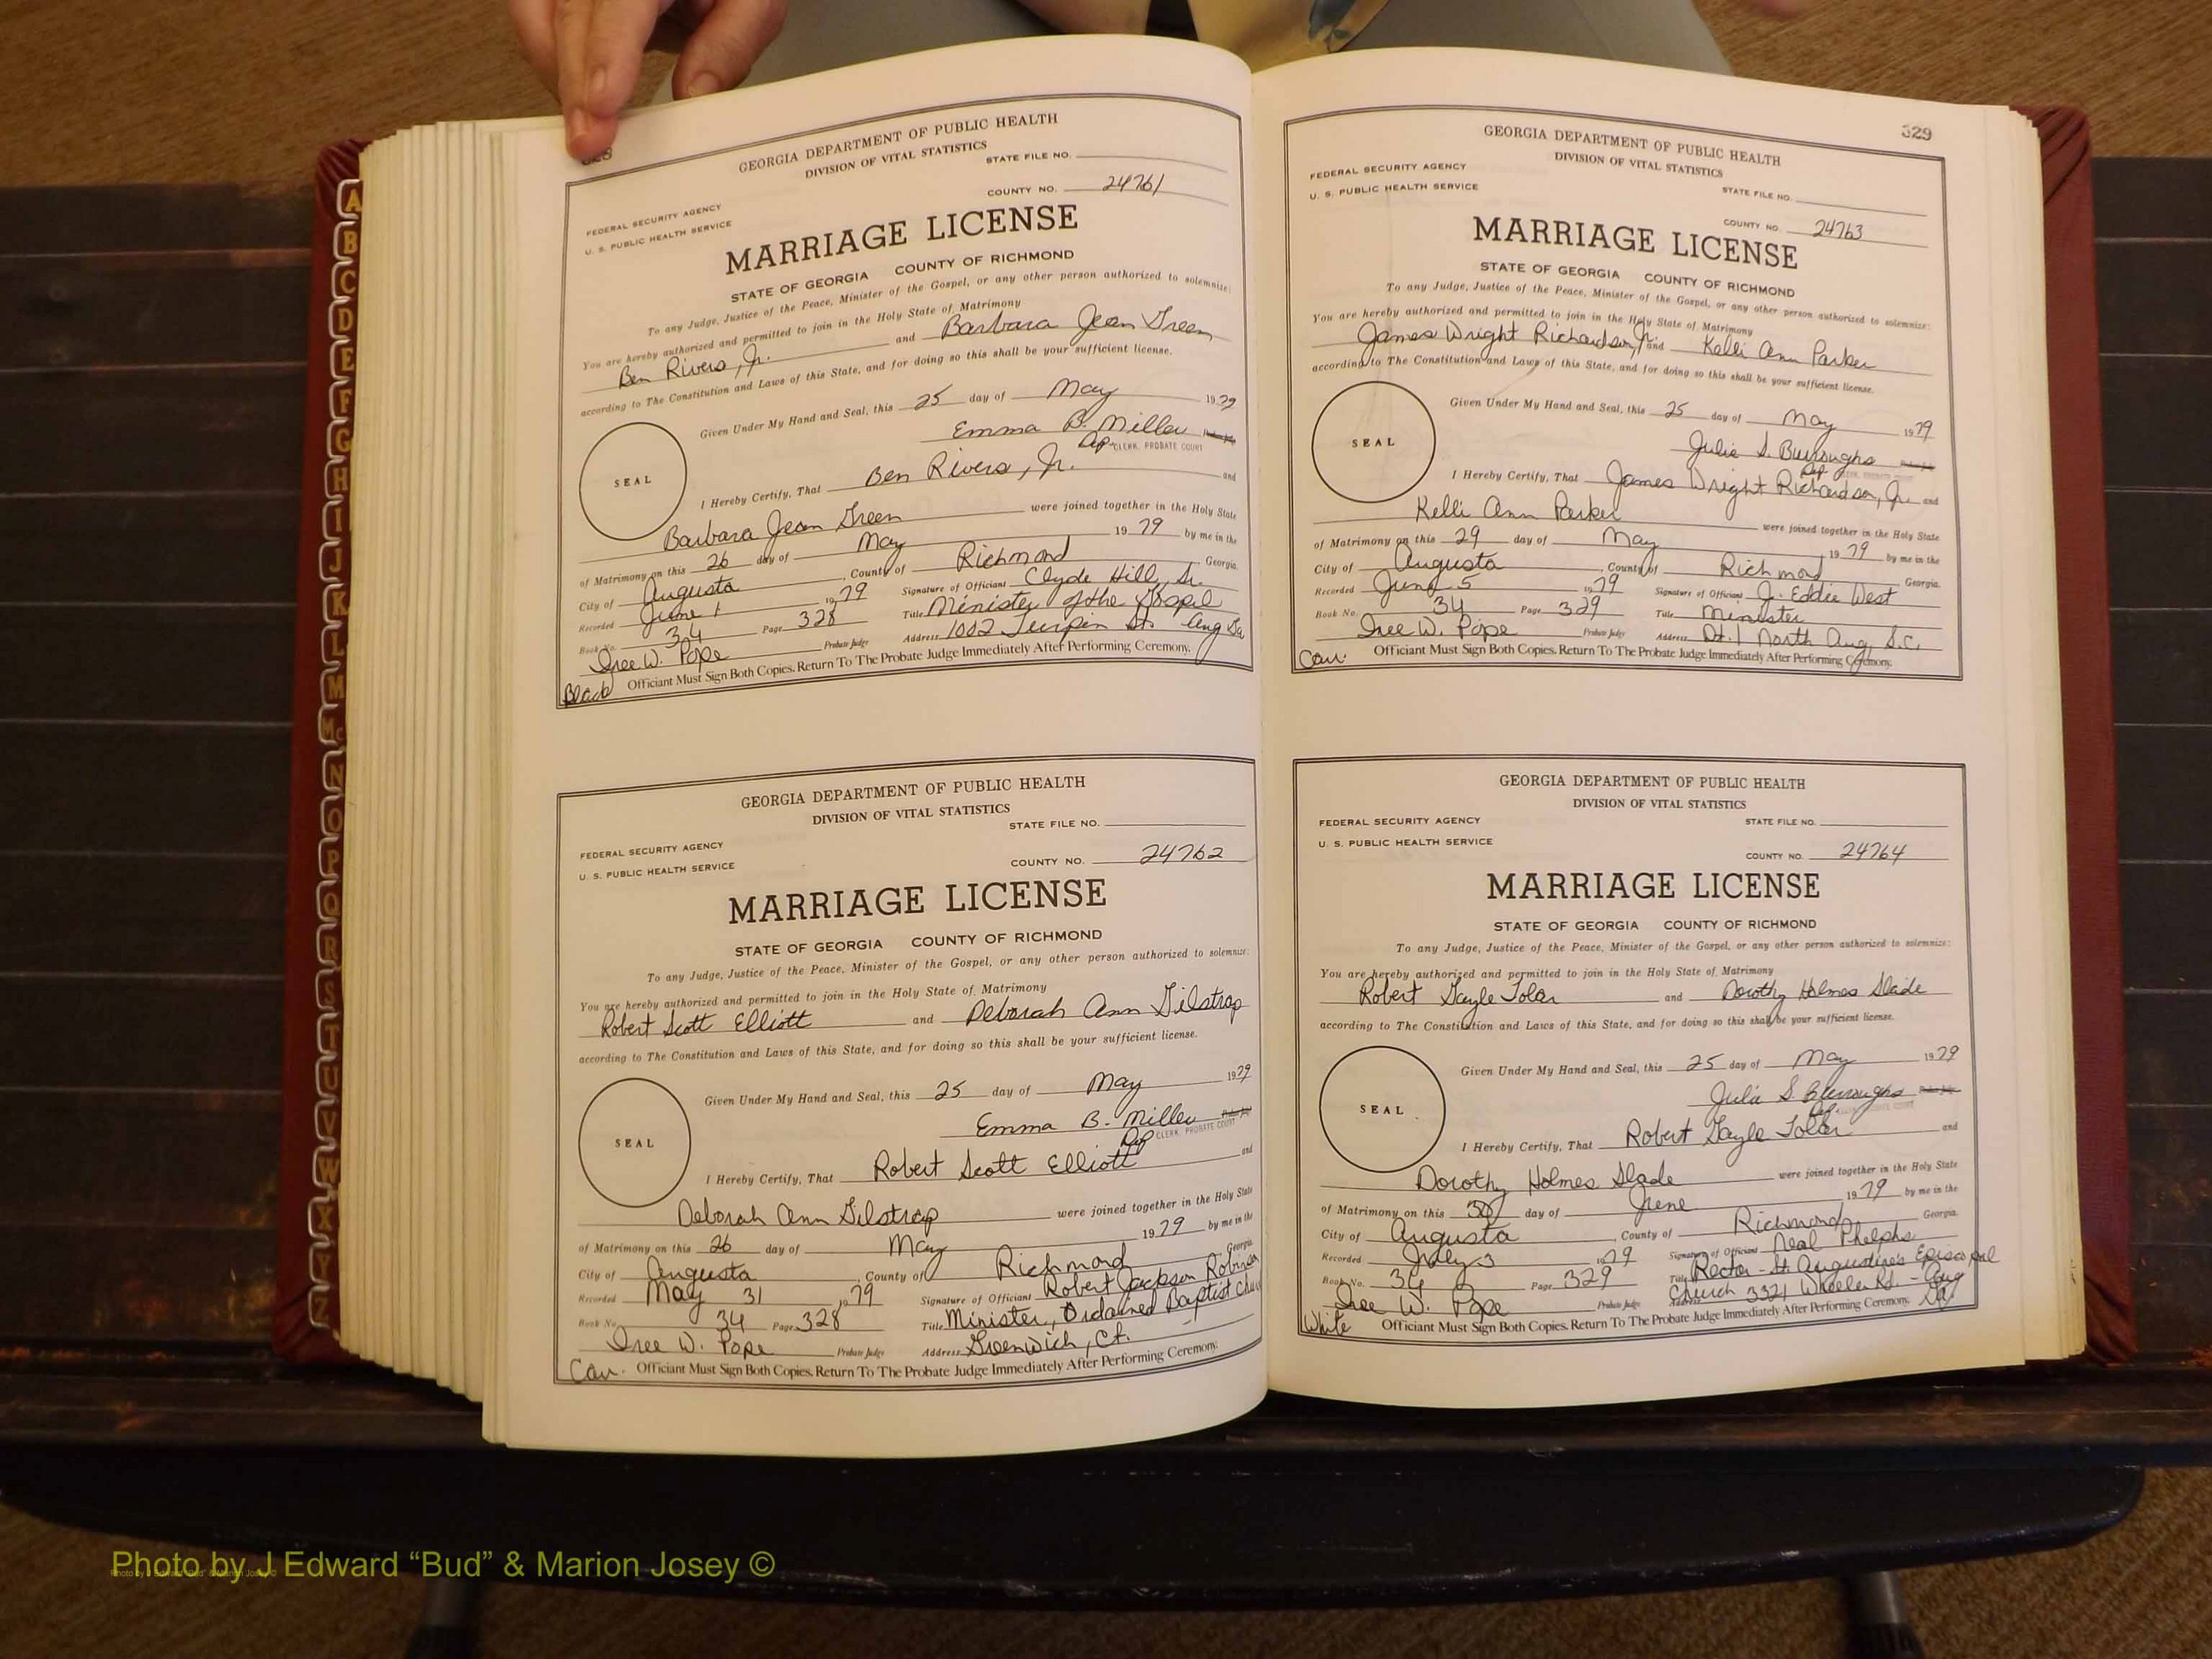 328
GEORGIA DEPARTMENT OF PUBLIC HEALTH
DIVISION OF VITAL STATISTICS
STATE FILE NO.
COUNTY NO. 24761
FEDERAL SECURITY AGENCY
U. S. PUBLIC HEALTH SERVICE
MARRIAGE LICENSE
STATE OF GEORGIA COUNTY OF RICHMOND
To any Judge, Justice of the Peace, Minister of the Gospel, or any other person authorized to solemnize:
You are hereby authorized and permitted to join in the Holy State of Matrimony
Ben Rivers, Jr. and Barbara Jean Green
according to The Constitution and Laws of this State, and for doing so this shall be your sufficient license.
Given Under My Hand and Seal, this 25 day of May 1979
Emma B. Miller Probate Judge
Dep. CLERK, PROBATE COURT
SEAL
I Hereby Certify, That Ben Rivers, Jr. and
Barbara Jean Green were joined together in the Holy State
of Matrimony on this 26 day of May 1979 by me in the
City of Augusta, County of Richmond Georgia.
Recorded June 1 1979 Signature of Officiant Clyde Hill, Sr.
Book No. 34 Page 328 Title Minister of the Gospel
Iree W. Pope Probate Judge Address 1002 Turpin St. Aug Ga
Black Officiant Must Sign Both Copies. Return To The Probate Judge Immediately After Performing Ceremony.
GEORGIA DEPARTMENT OF PUBLIC HEALTH
DIVISION OF VITAL STATISTICS
STATE FILE NO.
FEDERAL SECURITY AGENCY
U. S. PUBLIC HEALTH SERVICE
COUNTY NO. 24762
MARRIAGE LICENSE
STATE OF GEORGIA COUNTY OF RICHMOND
To any Judge, Justice of the Peace, Minister of the Gospel, or any other person authorized to solemnize:
You are hereby authorized and permitted to join in the Holy State of Matrimony
Robert Scott Elliott and Deborah Ann Gilstrap
according to The Constitution and Laws of this State, and for doing so this shall be your sufficient license.
Given Under My Hand and Seal, this 25 day of May 1979
Emma B. Miller Probate Judge
Dep CLERK, PROBATE COURT
SEAL
I Hereby Certify, That Robert Scott Elliott and
Deborah Ann Gilstrap were joined together in the Holy State
of Matrimony on this 26 day of May 1979 by me in the
City of Augusta, County of Richmond Georgia.
Recorded May 31 1979 Signature of Officiant Robert Jackson Robinson
Book No. 34 Page 328 Title Minister, Ordained Baptist
Iree W. Pope Probate Judge Address Greenwich, Ct.
Cau. Officiant Must Sign Both Copies. Return To The Probate Judge Immediately After Performing Ceremony.
329
GEORGIA DEPARTMENT OF PUBLIC HEALTH
DIVISION OF VITAL STATISTICS
FEDERAL SECURITY AGENCY
U. S. PUBLIC HEALTH SERVICE
STATE FILE NO.
COUNTY NO. 24763
MARRIAGE LICENSE
STATE OF GEORGIA COUNTY OF RICHMOND
To any Judge, Justice of the Peace, Minister of the Gospel, or any other person authorized to solemnize:
You are hereby authorized and permitted to join in the Holy State of Matrimony
James Wright Richardson, Jr. and Kelli Ann Parker
according to The Constitution and Laws of this State, and for doing so this shall be your sufficient license.
Given Under My Hand and Seal, this 25 day of May 1979
Julia S. Burroughs Probate Judge
Dep. CLERK, PROBATE COURT
SEAL
I Hereby Certify, That James Wright Richardson, Jr. and
Kelli Ann Parker were joined together in the Holy State
of Matrimony on this 29 day of May 1979 by me in the
City of Augusta, County of Richmond Georgia.
Recorded June 5 1979 Signature of Officiant J. Eddie West
Book No. 34 Page 329 Title Minister
Iree W. Pope Probate Judge Address Rt. 1 North Aug, S.C.
Cau. Officiant Must Sign Both Copies. Return To The Probate Judge Immediately After Performing Ceremony.
GEORGIA DEPARTMENT OF PUBLIC HEALTH
DIVISION OF VITAL STATISTICS
FEDERAL SECURITY AGENCY
STATE FILE NO.
U. S. PUBLIC HEALTH SERVICE
COUNTY NO. 24764
MARRIAGE LICENSE
STATE OF GEORGIA COUNTY OF RICHMOND
To any Judge, Justice of the Peace, Minister of the Gospel, or any other person authorized to solemnize:
You are hereby authorized and permitted to join in the Holy State of Matrimony
Robert Gayle Toler and Dorothy Holmes Slade
according to The Constitution and Laws of this State, and for doing so this shall be your sufficient license.
Given Under My Hand and Seal, this 25 day of May 1979
Julia S. Burroughs Probate Judge
Dep. CLERK, PROBATE COURT
SEAL
I Hereby Certify, That Robert Gayle Toler and
Dorothy Holmes Slade were joined together in the Holy State
of Matrimony on this day of June 1979 by me in the
City of Augusta, County of Richmond Georgia.
Recorded July 3 1979 Signature of Officiant Neal Phelphs
Book No. 34 Page 329 Title Rector - St. Augustine's Episcopal
Iree W. Pope Probate Judge Address Church 3321 Wheeler Rd. - Aug Ga
White Officiant Must Sign Both Copies. Return To The Probate Judge Immediately After Performing Ceremony.
A
B
C
D
E
F
G
H
I
J
K
L
M
Mc
N
O
P
Q
R
S
T
U
V
W
X
Y
Z
Photo by J Edward “Bud” & Marion Josey ©
Photo by J Edward “Bud” & Marion Josey ©